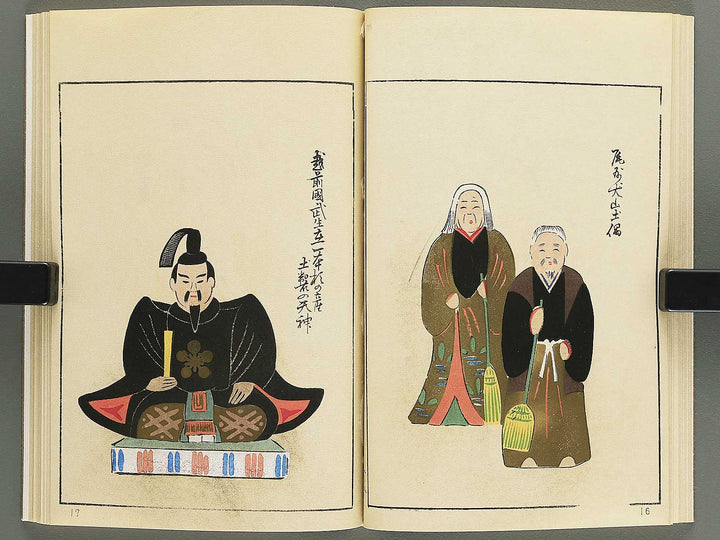 尾州犬山土偶
越前國武生在二丁本村の産
土製の天神
16
17